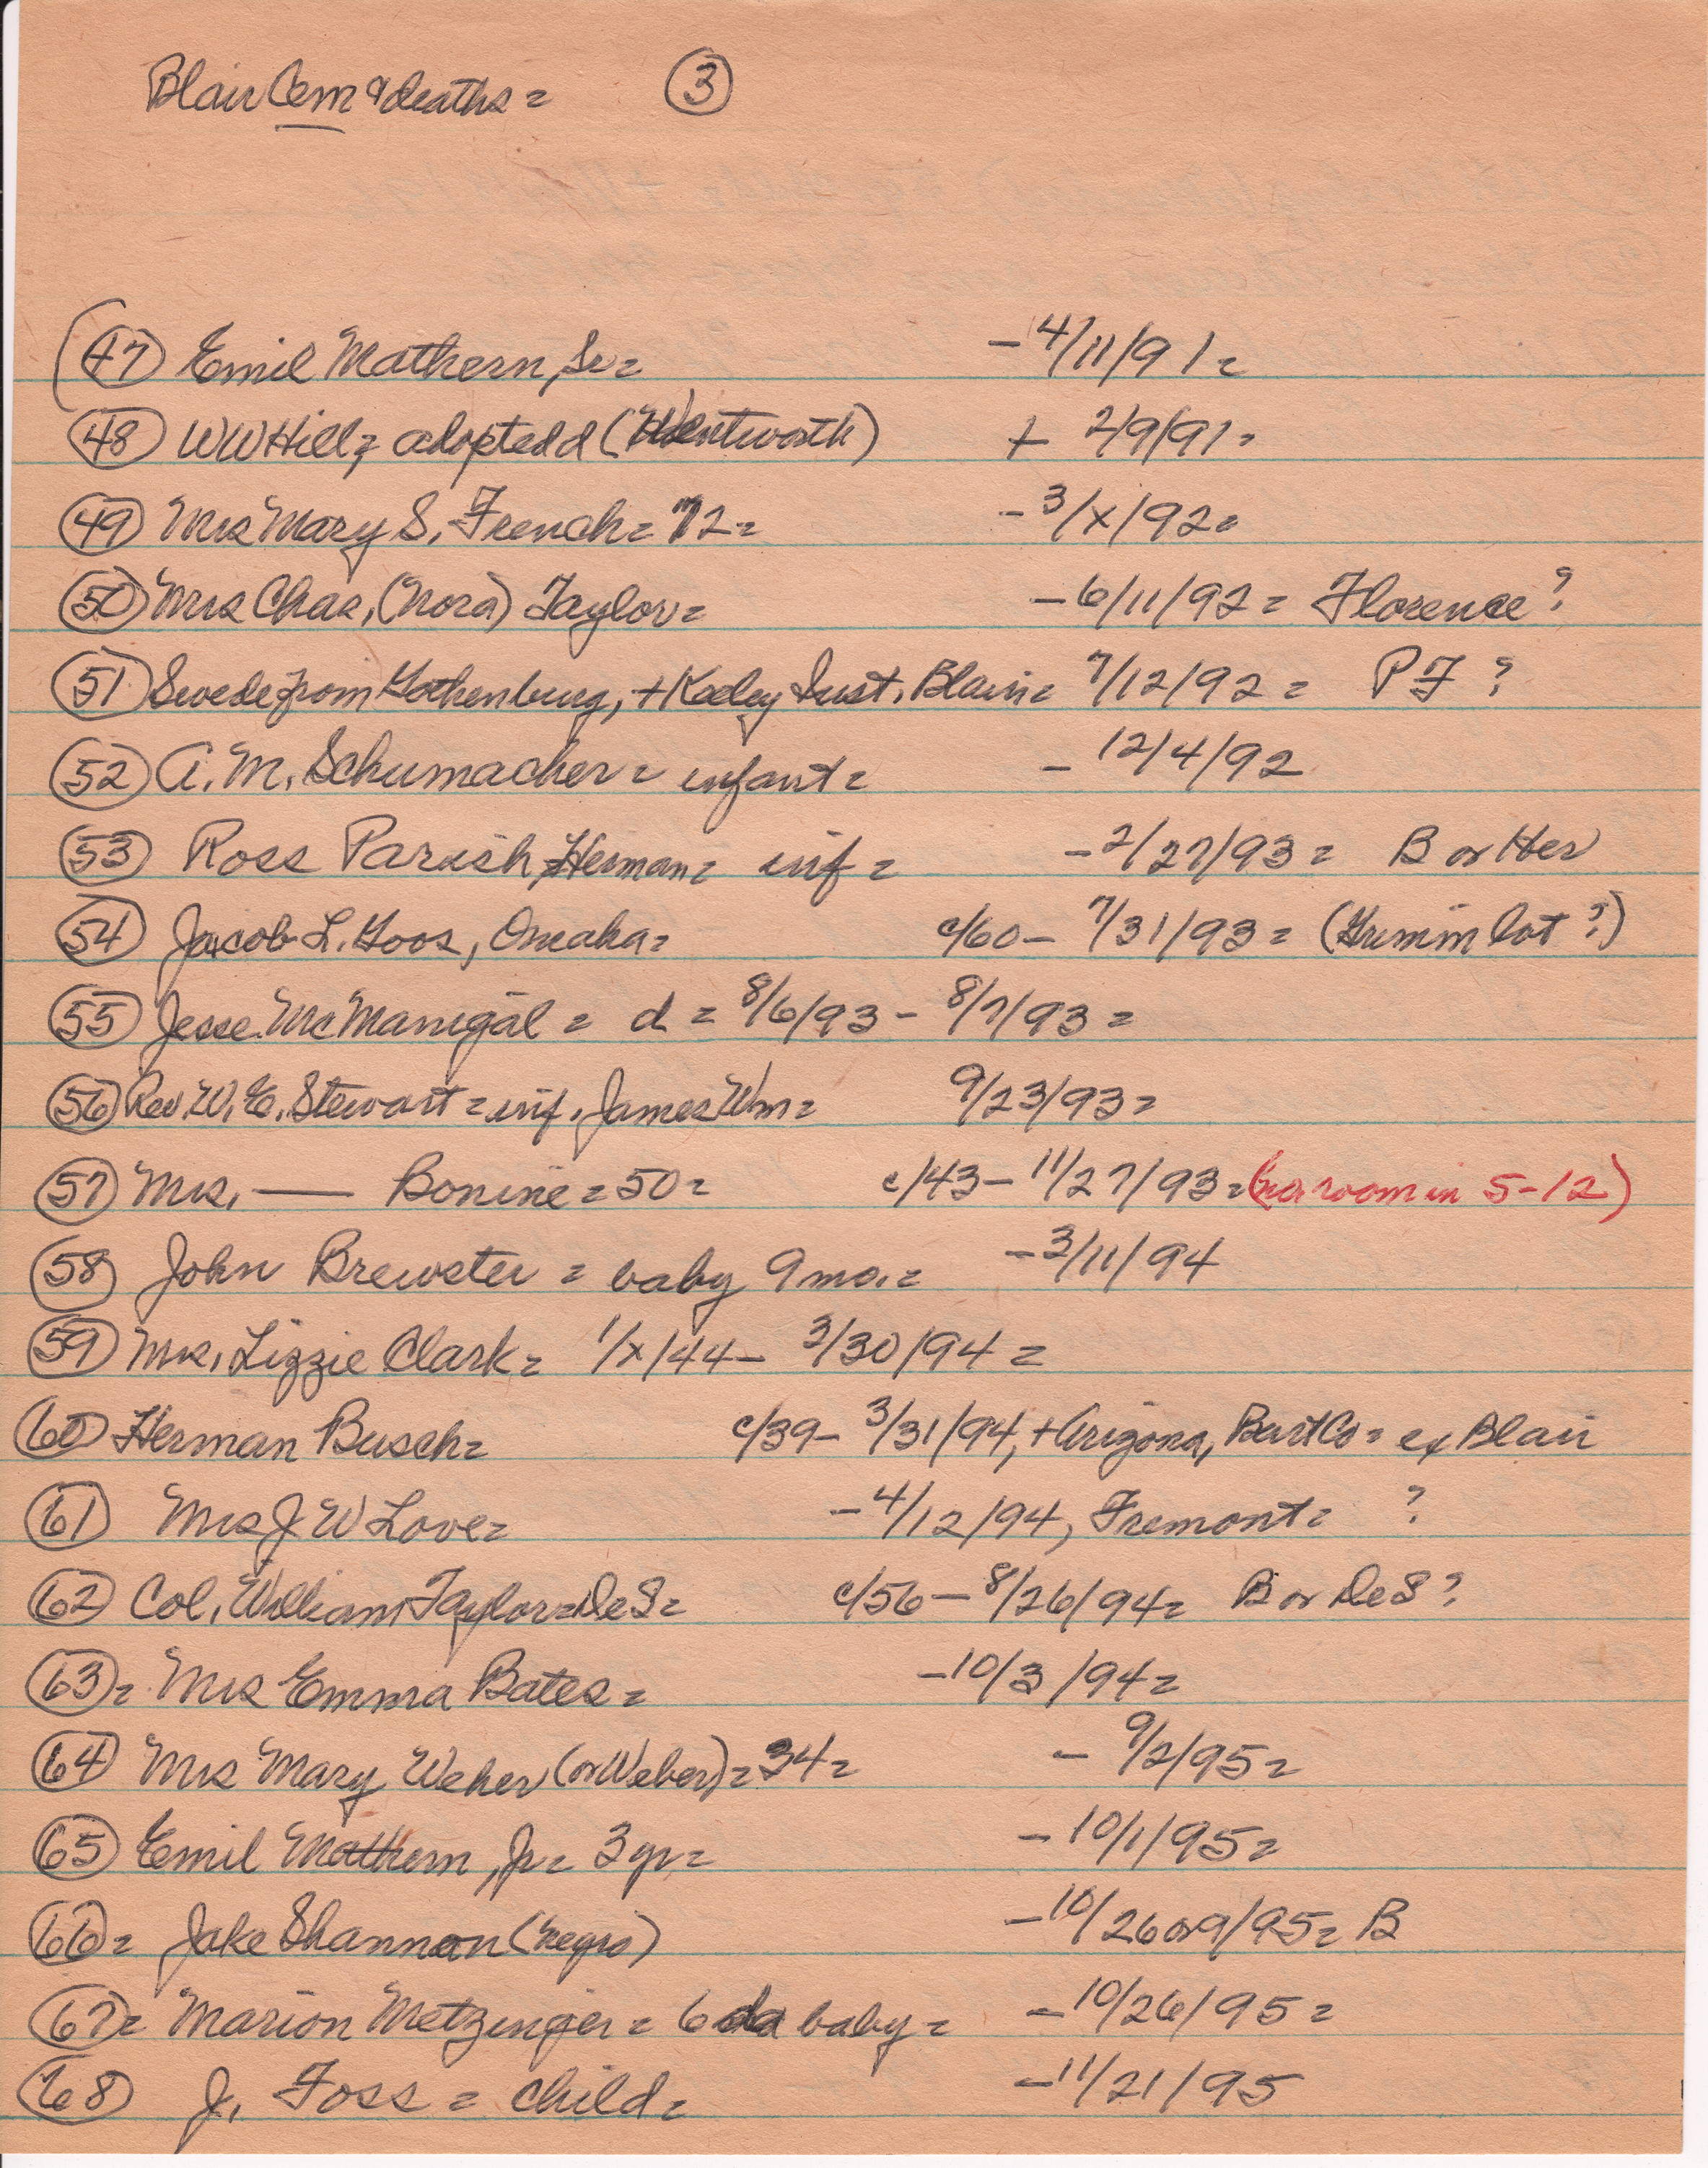 Blair Cem & deaths = (3)
(47) Emil Mathern, Sr = - 4/11/91 =
(48) WW Hill, adopted d (Wentworth) + 2/9/91 =
(49) Mrs Mary S. French = 72 = - 3/x/92 =
(50) Mrs Chas. (Nora) Taylor = - 6/11/92 = Florence?
(51) Swede from Gothenburg, + Keeley Inst. Blair = 7/12/92 = PF ?
(52) A. M. Schumacher = infant = - 12/4/92
(53) Ross Parish, Herman = inf = - 2/27/93 = B or Her
(54) Jacob L. Goos, Omaha = c/60 - 7/31/93 = (Grimm lot?)
(55) Jesse McManigal = d = 8/6/93 - 8/7/93 =
(56) Rev. W. E. Stewart = inf. James Wm = 9/23/93 =
(57) Mrs. — Bonine = 50 = c/43 - 11/27/93 = (no room in 5-12)
(58) John Brewster = baby 9 mo. = - 3/11/94
(59) Mrs. Lizzie Clark = 1/x/44 - 3/30/94 =
(60) Herman Busch = c/39 - 3/31/94, + Arizona, Burt Co = ex Blair
(61) Mrs J W Love = - 4/12/94, Fremont = ?
(62) Col. William Taylor = DeS = c/56 - 8/26/94 = B or DeS?
(63) = Mrs Emma Bates = - 10/3/94 =
(64) Mrs Mary Weher (or Weber) = 34 = - 9/2/95 =
(65) Emil Mathern, Jr = 3 yr = - 10/1/95 =
(66) = Jake Shannon (negro) - 10/26 or 9/95 = B
(67) = Marion Metzinger = 6 da baby = - 10/26/95 =
(68) J. Foss = child = - 11/21/95